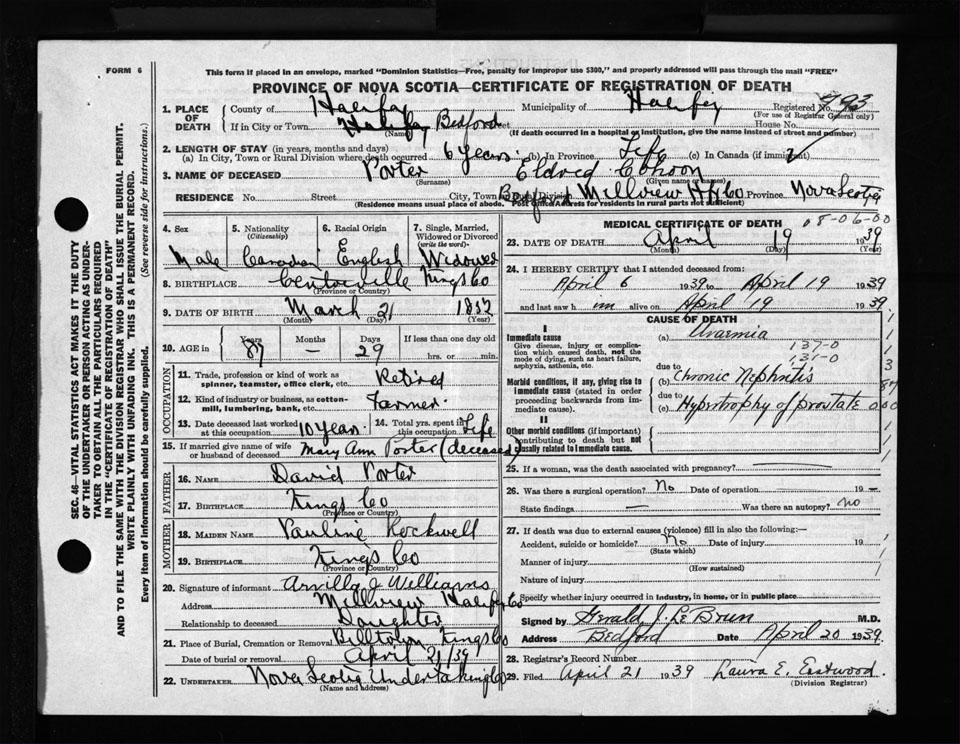 FORM 6
This form if placed in an envelope, marked "Dominion Statistics—Free, penalty for improper use $300," and properly addressed will pass through the mail "FREE"
PROVINCE OF NOVA SCOTIA—CERTIFICATE OF REGISTRATION OF DEATH
SEC. 46—VITAL STATISTICS ACT MAKES IT THE DUTY
OF THE UNDERTAKER OR PERSON ACTING AS UNDER-
TAKER TO OBTAIN ALL THE PARTICULARS REQUIRED
IN THE "CERTIFICATE OF REGISTRATION OF DEATH"
AND TO FILE THE SAME WITH THE DIVISION REGISTRAR WHO SHALL ISSUE THE BURIAL PERMIT.
WRITE PLAINLY WITH UNFADING INK. THIS IS A PERMANENT RECORD.
Every item of information should be carefully supplied. (See reverse side for instructions.)
1. PLACE OF DEATH County of Halifax Municipality of Halifax Registered No. 793
(For use of Registrar General only)
If in City or Town Halifax Bedford House No.
(Name) (If death occurred in a hospital or institution, give the name instead of street and number)
2. LENGTH OF STAY (in years, months and days)
(a) In City, Town or Rural Division where death occurred 6 years. (b) In Province Life (c) In Canada (if immigrant)
3. NAME OF DECEASED Porter Eldred
(Surname) (Given names)
RESIDENCE No. Street City, Town or Rural Division Millview Hfx Co Province Nova Scotia
(Residence means usual place of abode. Post Office Address for residents in rural parts not sufficient)
4. Sex 5. Nationality (Citizenship) 6. Racial Origin 7. Single, Married, Widowed or Divorced (write the word)
Male Canadian English Widowed
8. BIRTHPLACE Centreville Kings Co
(Province or Country)
9. DATE OF BIRTH March 21 1852
(Month) (Day) (Year)
10. AGE in Years Months Days If less than one day
87 — 29 hrs. or min.
OCCUPATION
11. Trade, profession or kind of work as spinner, teamster, office clerk, etc. Retired
12. Kind of industry or business, as cotton-mill, lumbering, bank, etc. Farmer
13. Date deceased last worked at this occupation 10 years. 14. Total yrs. spent in this occupation Life
15. If married give name of wife or husband of deceased Mary Ann Porter (deceased)
FATHER
16. NAME David Porter
17. BIRTHPLACE Kings Co
(Province or Country)
MOTHER
18. MAIDEN NAME Pauline Rockwell
19. BIRTHPLACE Kings Co
(Province or Country)
20. Signature of informant Arvilla J Williams
Address Millview Halifax Co
Relationship to deceased Daughter
21. Place of Burial, Cremation or Removal Billtown Kings Co
Date of burial or removal April 21/39
22. UNDERTAKER Nova Scotia Undertaking Co
(Name and address)
MEDICAL CERTIFICATE OF DEATH 08-06-00
23. DATE OF DEATH April 19 1939
(Month) (Day) (Year)
24. I HEREBY CERTIFY that I attended deceased from
April 6 1939 to April 19 1939
and last saw him alive on April 19 1939
CAUSE OF DEATH
I
Immediate cause (a) Uraemia
Give disease, injury or complication which caused death, not the mode of dying, such as heart failure, asphyxia, asthenia, etc.
137-0
131-0
due to
(b) Chronic Nephritis
Morbid conditions, if any, giving rise to immediate cause (stated in order proceeding backwards from immediate cause).
due to
(c) Hypertrophy of prostate
II
Other morbid conditions (if important) contributing to death but not causally related to immediate cause.
25. If a woman, was the death associated with pregnancy?
26. Was there a surgical operation? No Date of operation 19—
State findings — Was there an autopsy? no
27. If death was due to external causes (violence) fill in also the following:—
Accident, suicide or homicide? No Date of injury 19
(State which)
Manner of injury
(How sustained)
Nature of injury
Specify whether injury occurred in industry, in home, or in public place
Signed by Gerald J. LeBrun M.D.
Address Bedford Date April 20 1939.
28. Registrar's Record Number
29. Filed April 21 1939 Laura E. Eastwood.
(Division Registrar)